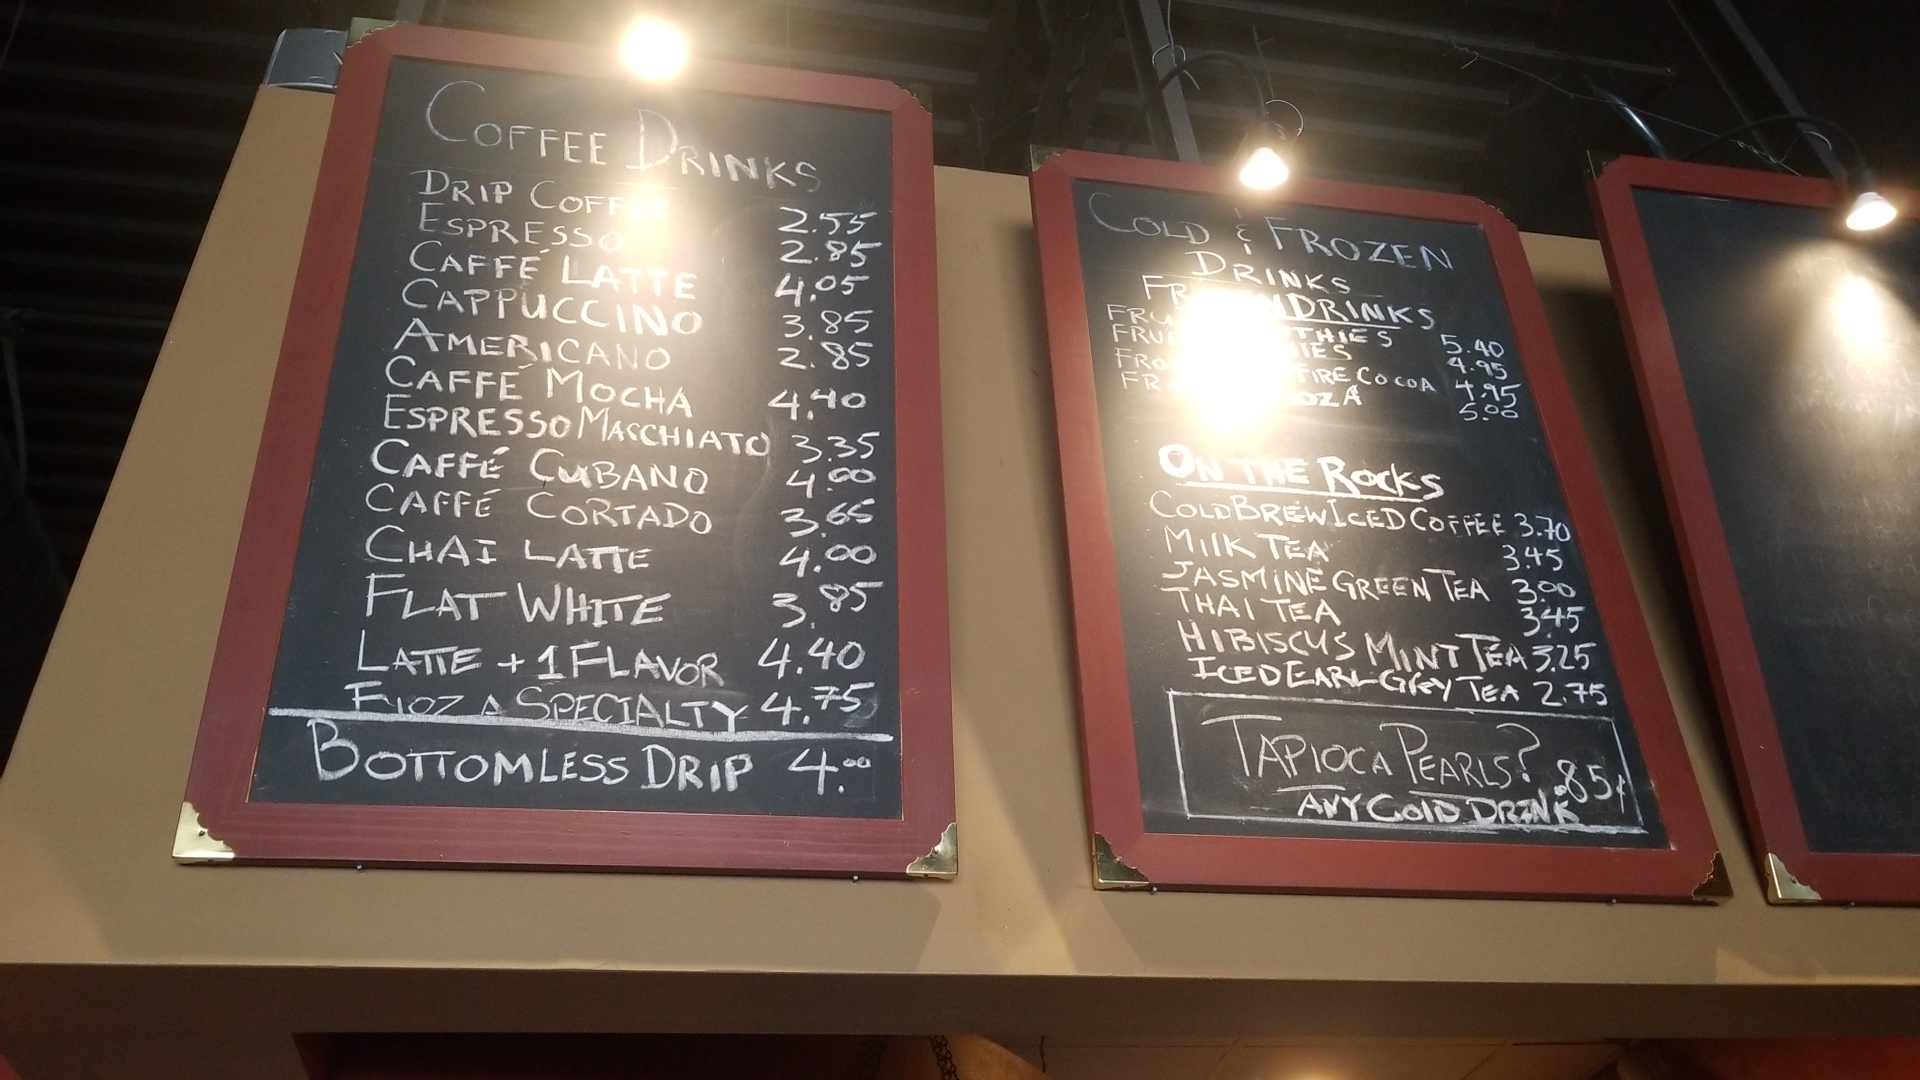 COFFEE DRINKS
DRIP COFFEE 2.55
ESPRESSO 2.85
CAFFÉ LATTE 4.05
CAPPUCCINO 3.85
AMERICANO 2.85
CAFFÉ MOCHA 4.40
ESPRESSO MACCHIATO 3.35
CAFFÉ CUBANO 4.00
CAFFÉ CORTADO 3.65
CHAI LATTE 4.00
FLAT WHITE 3.85
LATTE + 1 FLAVOR 4.40
FIOZA SPECIALTY 4.75
BOTTOMLESS DRIP 4.00
COLD & FROZEN
DRINKS
DRINKS
5.40
4.95
COCOA 4.95
5.00
ON THE ROCKS
COLD BREW ICED COFFEE 3.70
MILK TEA 3.45
JASMINE GREEN TEA 3.00
THAI TEA 3.45
HIBISCUS MINT TEA 3.25
ICED EARL GREY TEA 2.75
TAPIOCA PEARLS? .85¢
ANY COLD DRINK